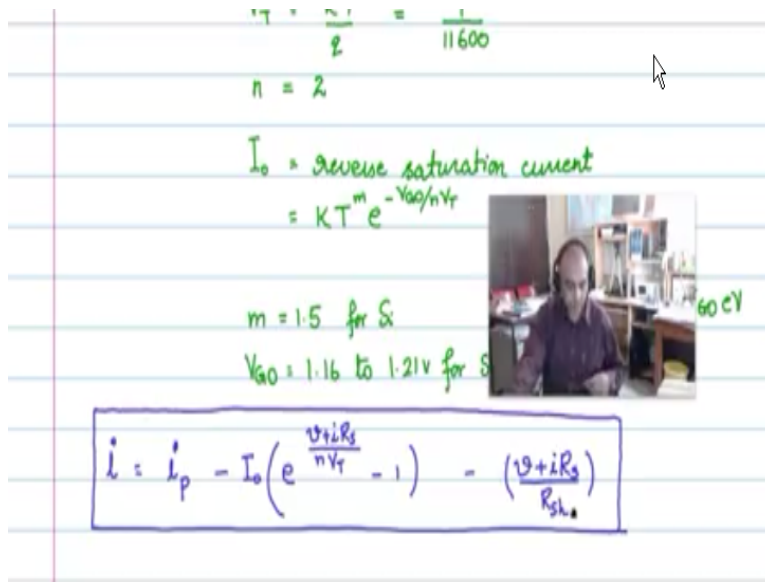 = 1
q 11600
n = 2
I₀ = reverse saturation current
= KT^m e^(-V_GO/nV_T)
m = 1.5 for Si
GO eV
V_GO = 1.16 to 1.21V for S
i = i_p - I₀(e^((v+iR_s)/(nV_T)) - 1) - ((v+iR_s)/R_sh)